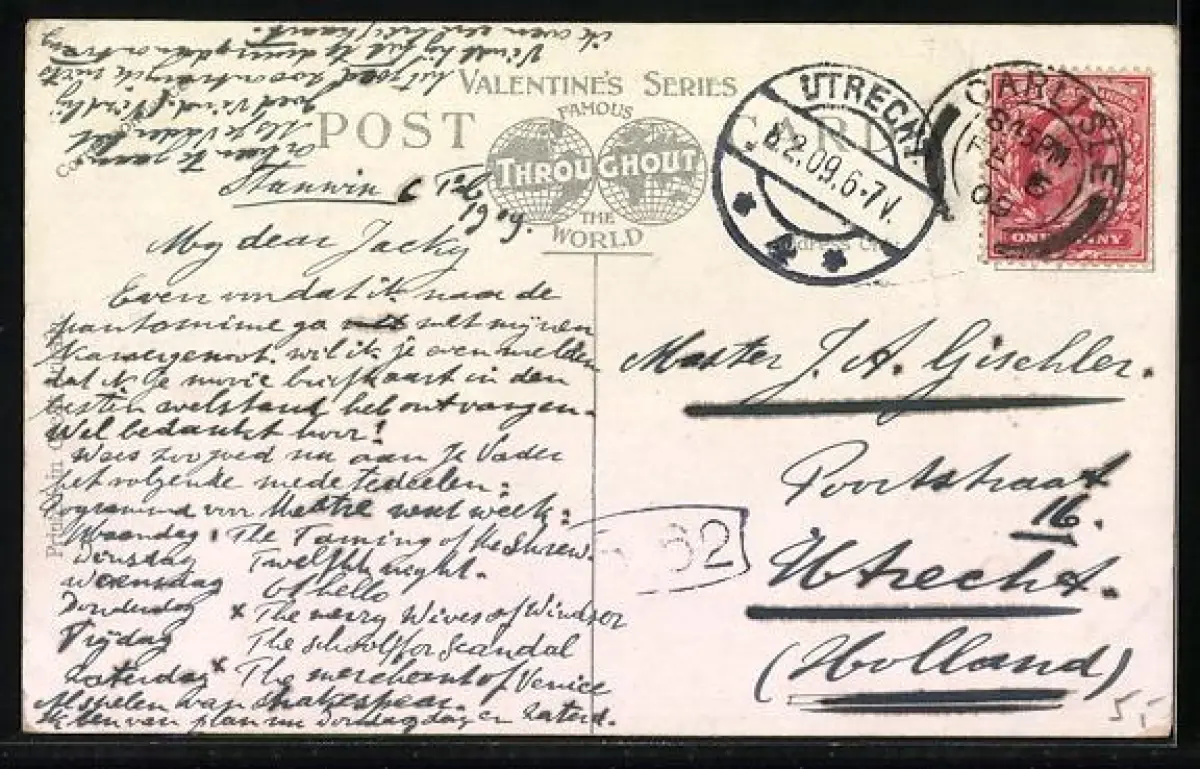 VALENTINE'S SERIES
FAMOUS
POST CARD
THROUGHOUT
THE
WORLD
UTRECHT
8.2.09.6-7V.
4
CARLISLE
8.15 PM
FE 6
09
ONE PENNY
Stanwix 6 Feb
1909.
My dear Jacky
Even omdat ik naar de
pantomime ga met mijn
wil ik je even melden
dat ik je mooie briefkaart in den
besten welstand heb ontvangen.
Wel bedankt hoor!
Wees zoo goed nu aan je Vader
het volgende mede te deelen:
Programma voor next week:
Maandag: The Taming of the Shrew.
Dinsdag Twelfth night.
Woensdag Othello
Donderdag x The merry Wives of Windsor
Vrijdag The school for Scandal
Zaterdag x The merchant of Venice
Al spelen van Shakespear.
Ik ben van plan nu Donderdag en Zaterd.
er heen te gaan
Als je Vader het
goed vindt
Vindt hij het te
ik even een briefkaart.
Master J. A. Gischler.
Poortstraat
16.
Utrecht.
(Holland)
62
5,-